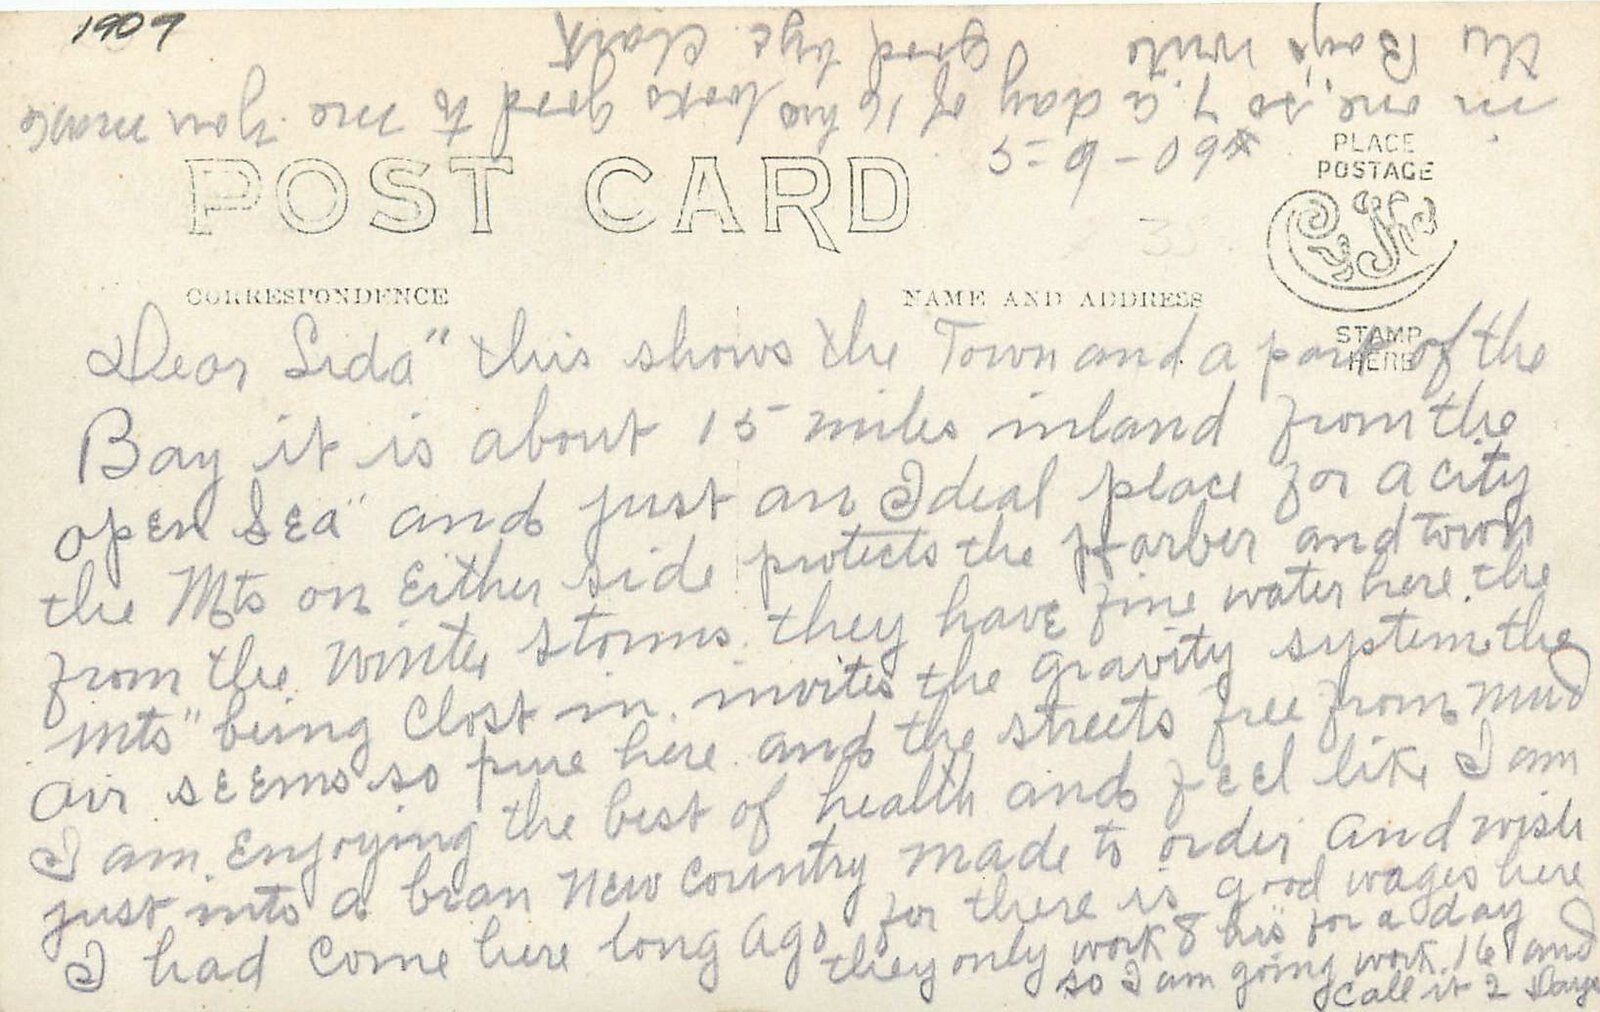 1909
POST CARD
PLACE
POSTAGE
STAMP
HERE
CORRESPONDENCE
NAME AND ADDRESS
Dear Lida" this shows the Town and a part of the
Bay it is about 15 miles inland from the
open Sea" and just an Ideal place for a city
the Mts on Either side protects the Harber and town
from the Winter storms. they have fine water here. the
Mts" being Clost in. invites the gravity system. the
air seems so pure here and the streets free from mud
I am Enjoying the best of health and feel like I am
just into a bran New Country made to order and wish
I had Come here long ago for there is good wages here
they only work 8 hrs for a day
so I am going work 16 and
Call it 2 Days
in one, so 7. a day of 16 hrs looks good to me you make
the Boys write good bye Clark
5-9-09